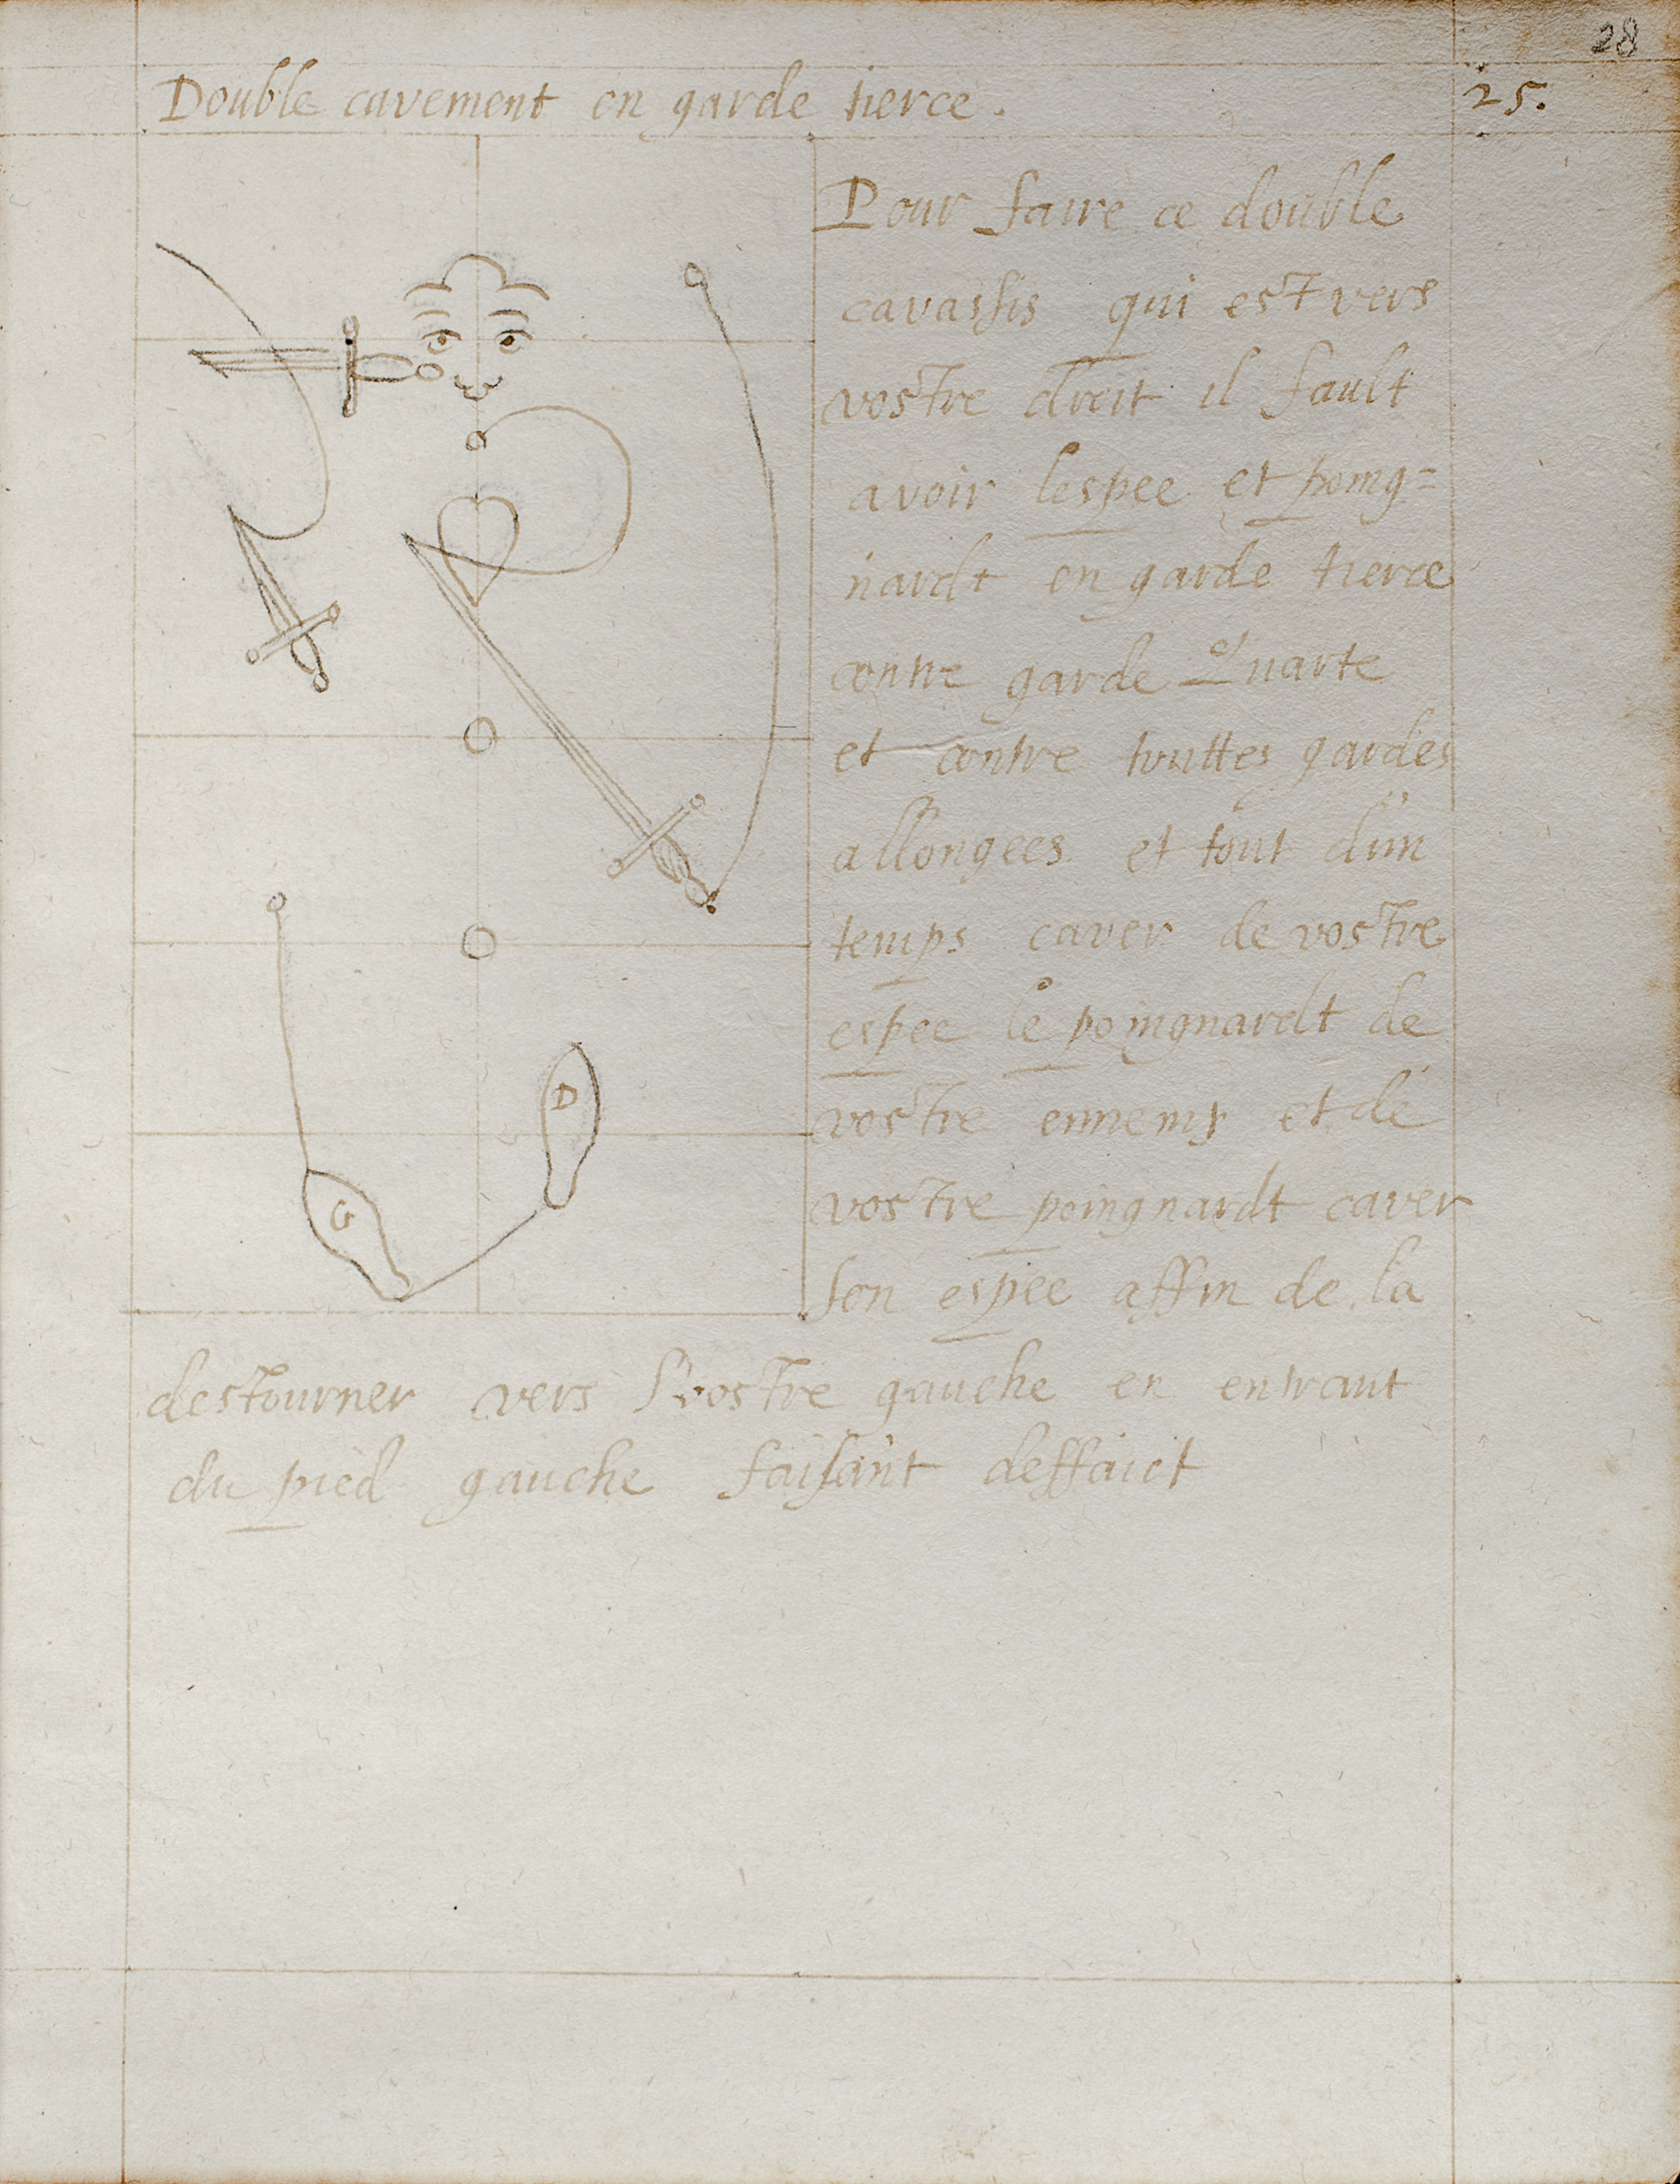 28
Double cavement en garde tierce.
25.
Pour faire ce double
cavassis qui est vers
vostre droit il fault
avoir lespee et poing=
nardt en garde tierce
contre garde Quarte
et contre touttes gardes
allongees et tout dun
temps caver de vostre
espee le poingnardt de
vostre ennemy et de
vostre poingnardt caver
son espee affin de la
destourner vers vostre gauche en entrant
du pied gauche faisant deffaict
D
G